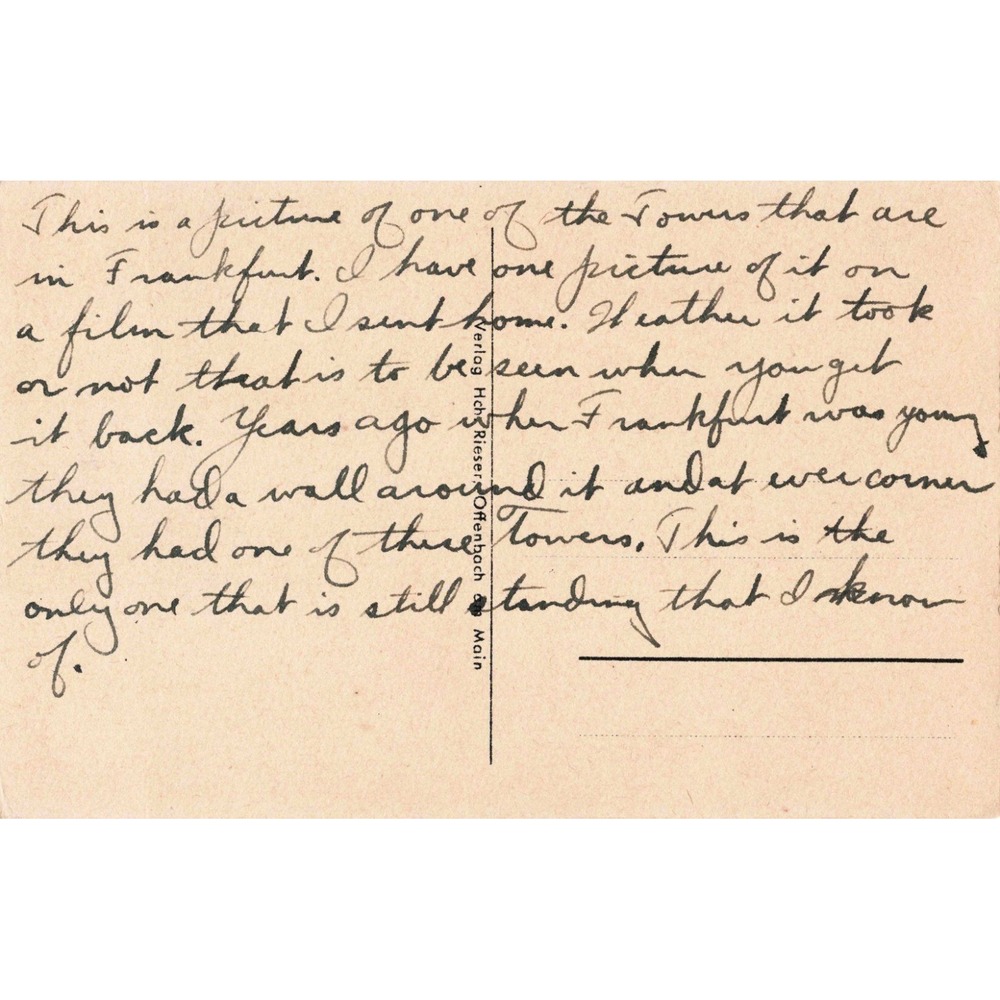 This is a picture of one of the Towers that are
in Frankfurt. I have one picture of it on
a film that I sent home. Weather it took
or not thrat is to be seen when you get
it back. Years ago when Frankfurt was young
they had a wall around it and at ever corner
they had one of these Towers. This is the
only one that is still standing that I know
of.
Verlag Hch. Rieser, Offenbach am Main